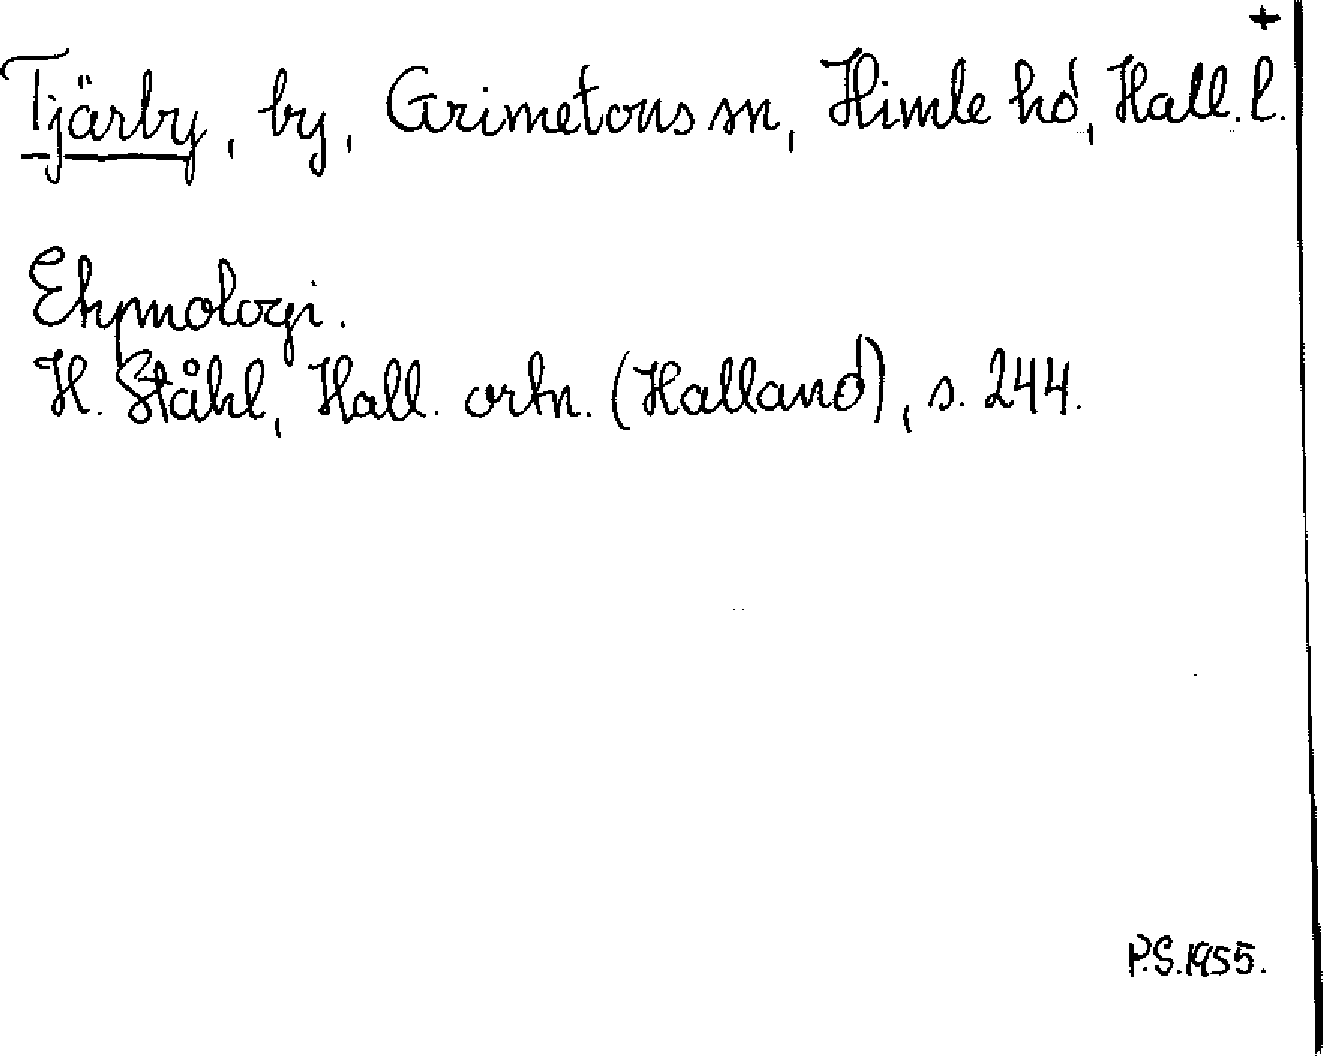 +
Tjärby, by, Grimetons sn, Himle hd, Hall. l.
Etymologi.
H. Ståhl, Hall. ortn. (Halland), s. 244.
P.S. 1955.